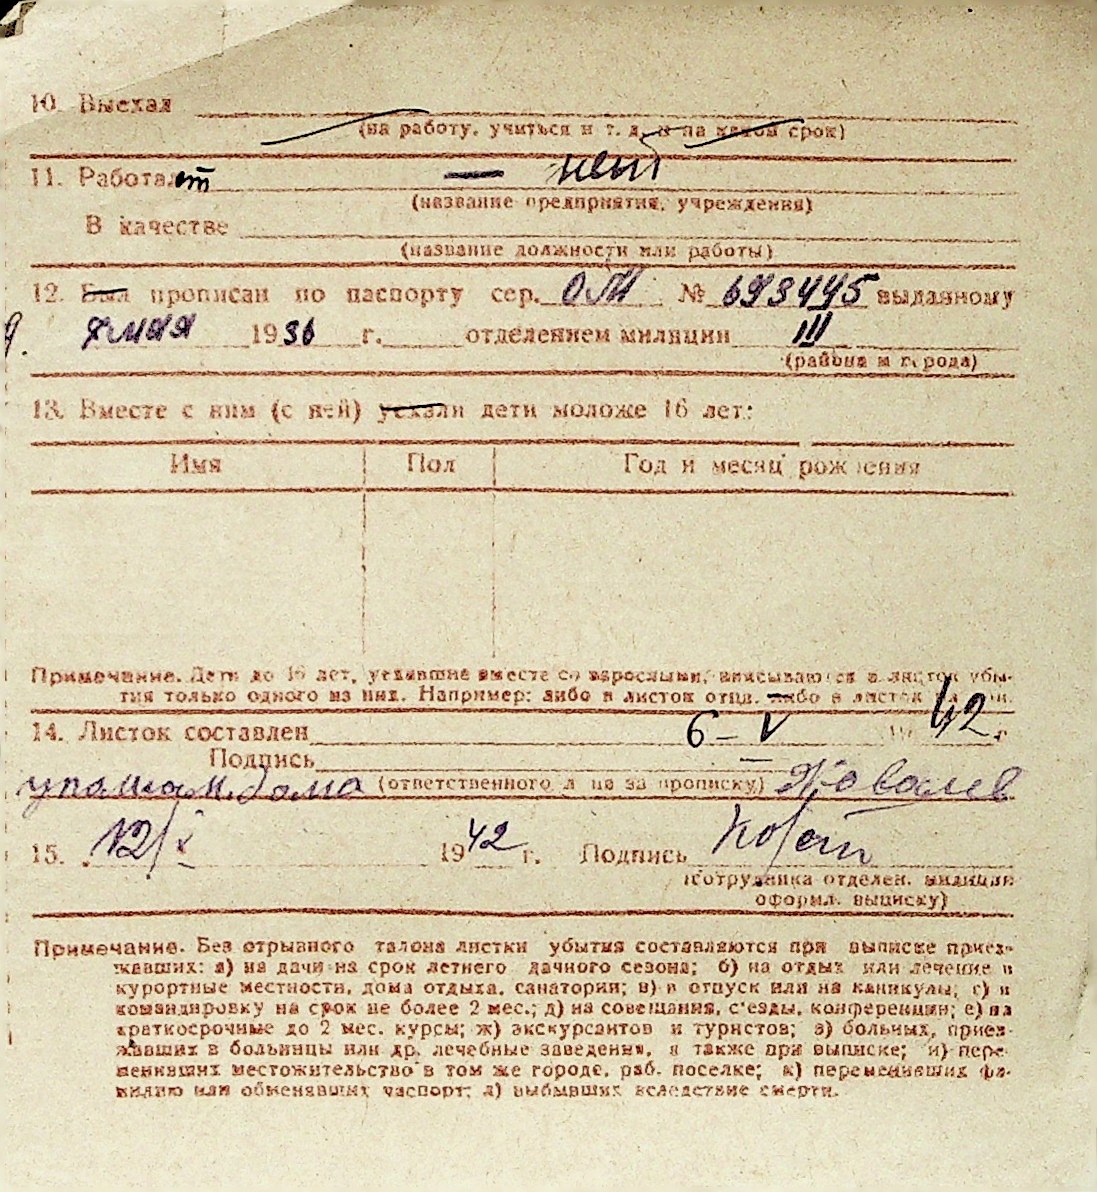 10. Выехал
(на работу, учиться и т. д. и на какой срок)
11. Работает — нет
(название предприятия, учреждения)
В качестве
(название должности или работы)
12. Был прописан по паспорту сер. ОМ № 693445 выданному
9. мая 1936 г. отделением милиции III
(района и города)
13. Вместе с ним (с ней) уехали дети моложе 16 лет:
Имя Пол Год и месяц рождения
Примечание. Дети до 16 лет, уехавшие вместе со взрослыми, вписываются в листок убы-
тия только одного из них. Например: либо в листок отца, либо в листок матери.
14. Листок составлен 6 – V 1942 г.
Подпись
дома (ответственного лица за прописку) Ковалев
15. 12/V 1942 г. Подпись
(сотрудника отделен. милиции
оформл. выписку)
Примечание. Без отрывного талона листки убытия составляются при выписке приез-
жавших: а) на дачи на срок летнего дачного сезона; б) на отдых или лечение в
курортные местности, дома отдыха, санатории; в) в отпуск или на каникулы; г) в
командировку на срок не более 2 мес.; д) на совещания, с'езды, конференции; е) на
краткосрочные до 2 мес. курсы; ж) экскурсантов и туристов; з) больных, приез-
жавших в больницы или др. лечебные заведения, а также при выписке; и) пере-
менивших местожительство в том же городе, раб. поселке; к) переменивших фа-
милию или обменявших паспорт; л) выбывших вследствие смерти.